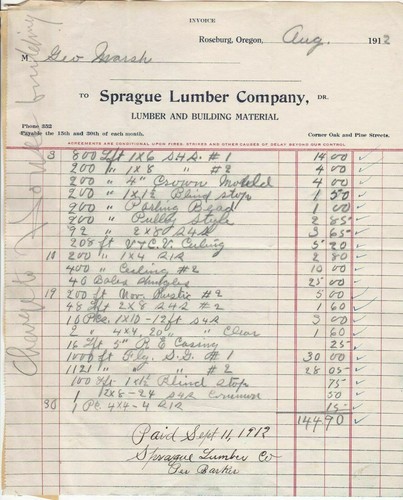 INVOICE
Roseburg, Oregon, Aug. 1912
M Geo Marsh
TO Sprague Lumber Company, DR.
LUMBER AND BUILDING MATERIAL
Phone 352
Payable the 15th and 30th of each month. Corner Oak and Pine Streets.
AGREEMENTS ARE CONDITIONAL UPON FIRES, STRIKES AND OTHER CAUSES OF DELAY BEYOND OUR CONTROL
Charge to House building
3 800 Lft 1X6 S4S. #1 14 00
200 " 1X8 " #2 4 00
200 " 4" Crown Mold 4 00
200 " 1X1½ Blind stop 1 50
200 " Parting Bead 1 00
200 " Pully Style 2 85
92 " 2X80 S4S 3 65
208 ft V & C.V. Ceiling 5 20
10 200 " 1X4 S1S 2 80
400 " Ceiling #2 10 00
40 Bales Shingles 25 00
19 200 ft Nov. Rustic #2 5 00
48 Lft 2X8 S4S #2 1 60
10 Pcs. 1X10-12ft S4S 3 00
2 " 4X4, 20" " Clear 1 60
16 Lft 5" B E Casing 25
1000 ft Flg. S.G. #1 30 00
1121 " " " #2 28 05
100 Lft 1X1½ Blind Stop 75
1 12X8-24 S4S Common 50
30 1 Pc. 4X4-4 S1S 15
144 90
Paid Sept 11, 1912
Sprague Lumber Co
Per Barker